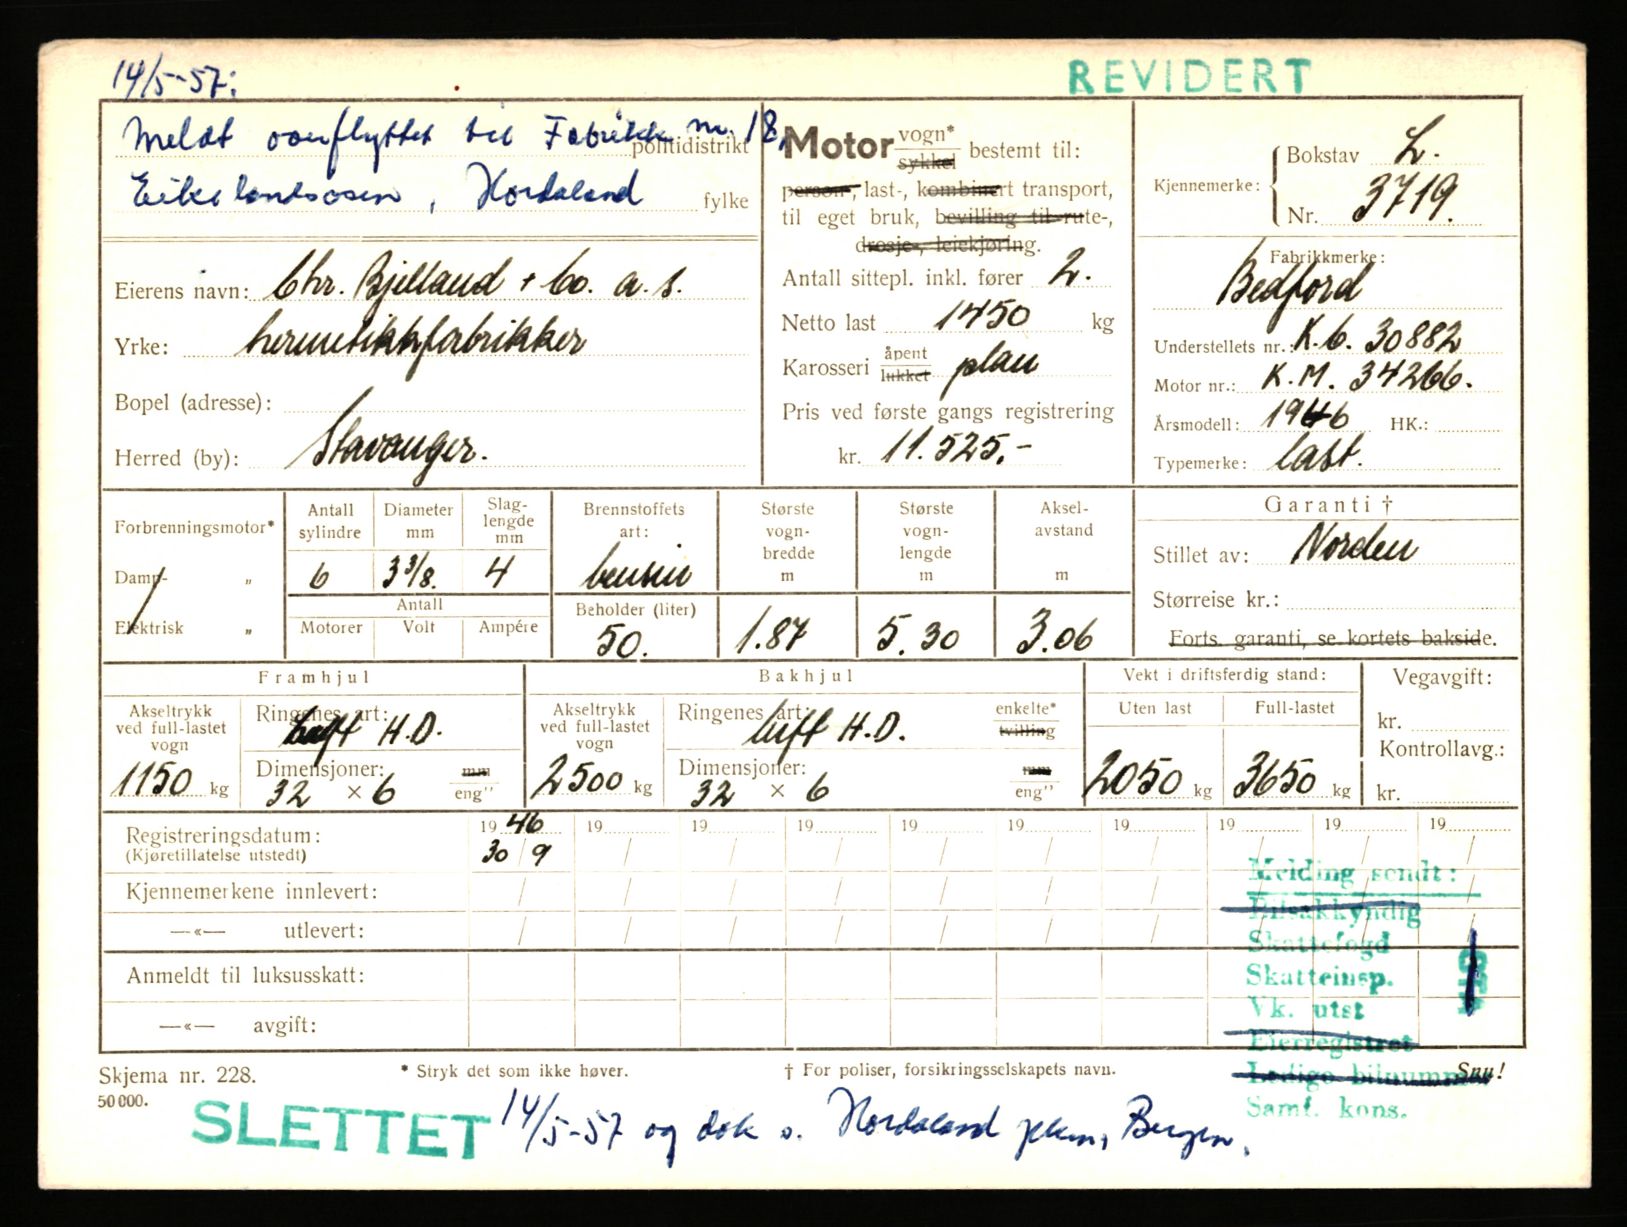 14/5-57:
REVIDERT
Meldt overflyttet til Fabrikk nr. 18,
politidistrikt
Eikelandsosen, Hordaland
fylke
Eierens navn: Chr. Bjelland + Co. a. s.
Yrke: hermetikkfabrikker
Bopel (adresse):
Herred (by): Stavanger.
Motor vogn* sykkel bestemt til:
person-, last-, kombinert transport,
til eget bruk, bevilling til rute-,
drosje-, leiekjøring.
Antall sittepl. inkl. fører 2.
Netto last 1450 kg
Karosseri åpent lukket plan
Pris ved første gangs registrering
kr. 11.525,-
Kjennemerke: Bokstav L.
Nr. 3719.
Fabrikkmerke:
Bedford
Understellets nr.: K.C. 30882
Motor nr.: K.M. 34266.
Årsmodell: 1946 HK.:
Typemerke: last.
Forbrenningsmotor*
Damp- "
Elektrisk "
Antall sylindre
6
Diameter mm
3 3/8.
Slag-lengde mm
4
Antall
Motorer Volt Ampére
Brennstoffets art:
bensin
Beholder (liter)
50.
Største vogn-bredde m
1.87
Største vogn-lengde m
5.30
Aksel-avstand m
3.06
Garanti †
Stillet av: Norden
Størreise kr.:
Forts. garanti, se kortets bakside.
Framhjul
Akseltrykk ved full-lastet vogn
1150 kg
Ringenes art:
luft H.D.
Dimensjoner: mm
32 × 6 eng"
Bakhjul
Akseltrykk ved full-lastet vogn
2500 kg
Ringenes art: enkelte*
luft H.D. tvilling
Dimensjoner: mm
32 × 6 eng"
Vekt i driftsferdig stand:
Uten last Full-lastet
2050 kg 3650 kg
Vegavgift:
kr.
Kontrollavg.:
kr.
Registreringsdatum: 19 46 19 19 19 19 19 19 19 19 19
(Kjøretillatelse utstedt) 30 / 9 / / / / / / / / /
Kjennemerkene innlevert: / / / / / / / / / /
—«— utlevert: / / / / / / / / / /
Anmeldt til luksusskatt:
—«— avgift:
Melding sendt:
Bilsakkyndig
Skattefogd
Skatteinsp.
Vk. utst
Eierregistret
Ledige bilnummer
Samf. kons.
Skjema nr. 228.
50 000.
* Stryk det som ikke høver.
† For poliser, forsikringsselskapets navn.
Snu!
SLETTET 14/5-57 og dok s. Hordaland pkm, Bergen.